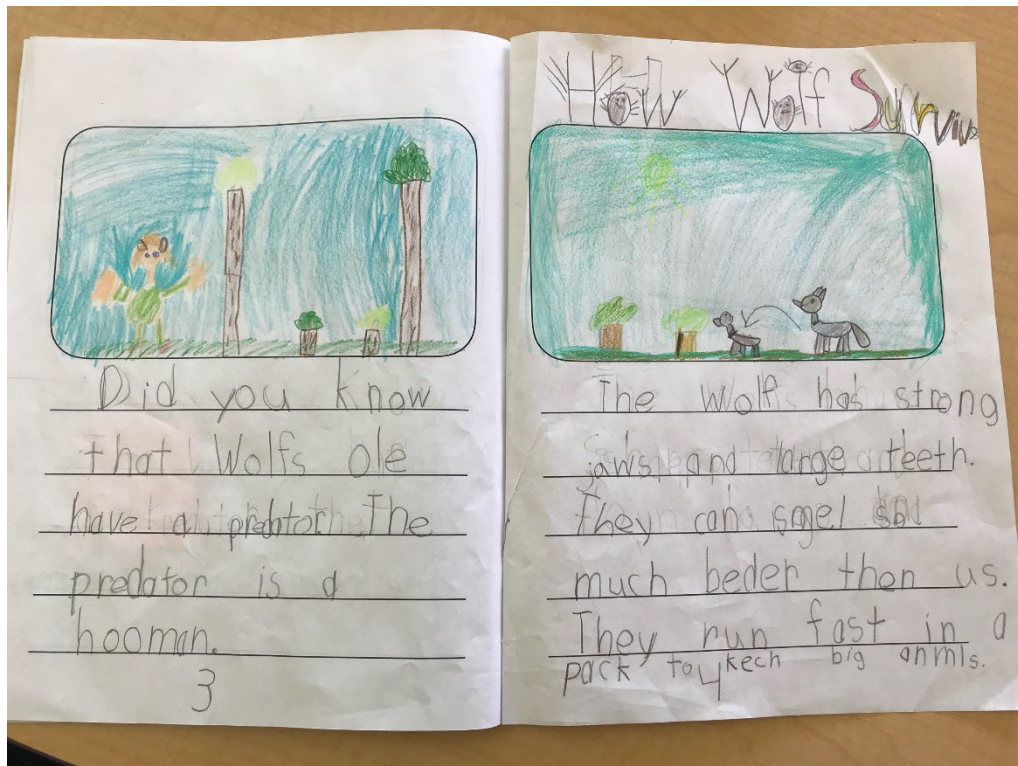 Did you know
that Wolfs ole
have a predator. The
predator is a
hooman.
3
How Wolf Survive
The Wolf has strong
jaws and large teeth.
They can
much beder then us.
They run fast in a
pack to kech big anmls.
4